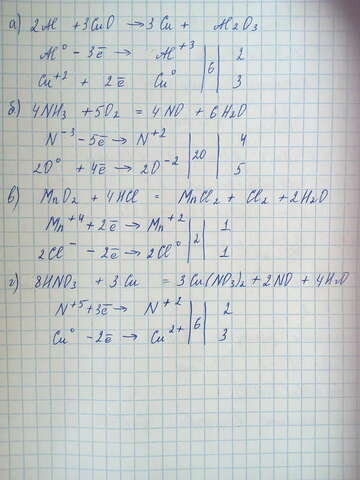 а) 2Al + 3CuO → 3Cu + Al2O3
Al⁰ - 3ē → Al⁺³ | | 2
Cu⁺² + 2ē Cu⁰ |6| 3
б) 4NH3 + 5O2 = 4NO + 6H2O
N⁻³ - 5ē → N⁺² | | 4
2O⁰ + 4ē → 2O⁻² |20| 5
в) MnO2 + 4HCl = MnCl2 + Cl2 + 2H2O
Mn⁺⁴ + 2ē → Mn⁺² | | 1
2Cl⁻ - 2ē → 2Cl⁰ |2| 1
г) 8HNO3 + 3Cu = 3Cu(NO3)2 + 2NO + 4H2O
N⁺⁵ + 3ē → N⁺² | | 2
Cu⁰ - 2ē → Cu²⁺ |6| 3